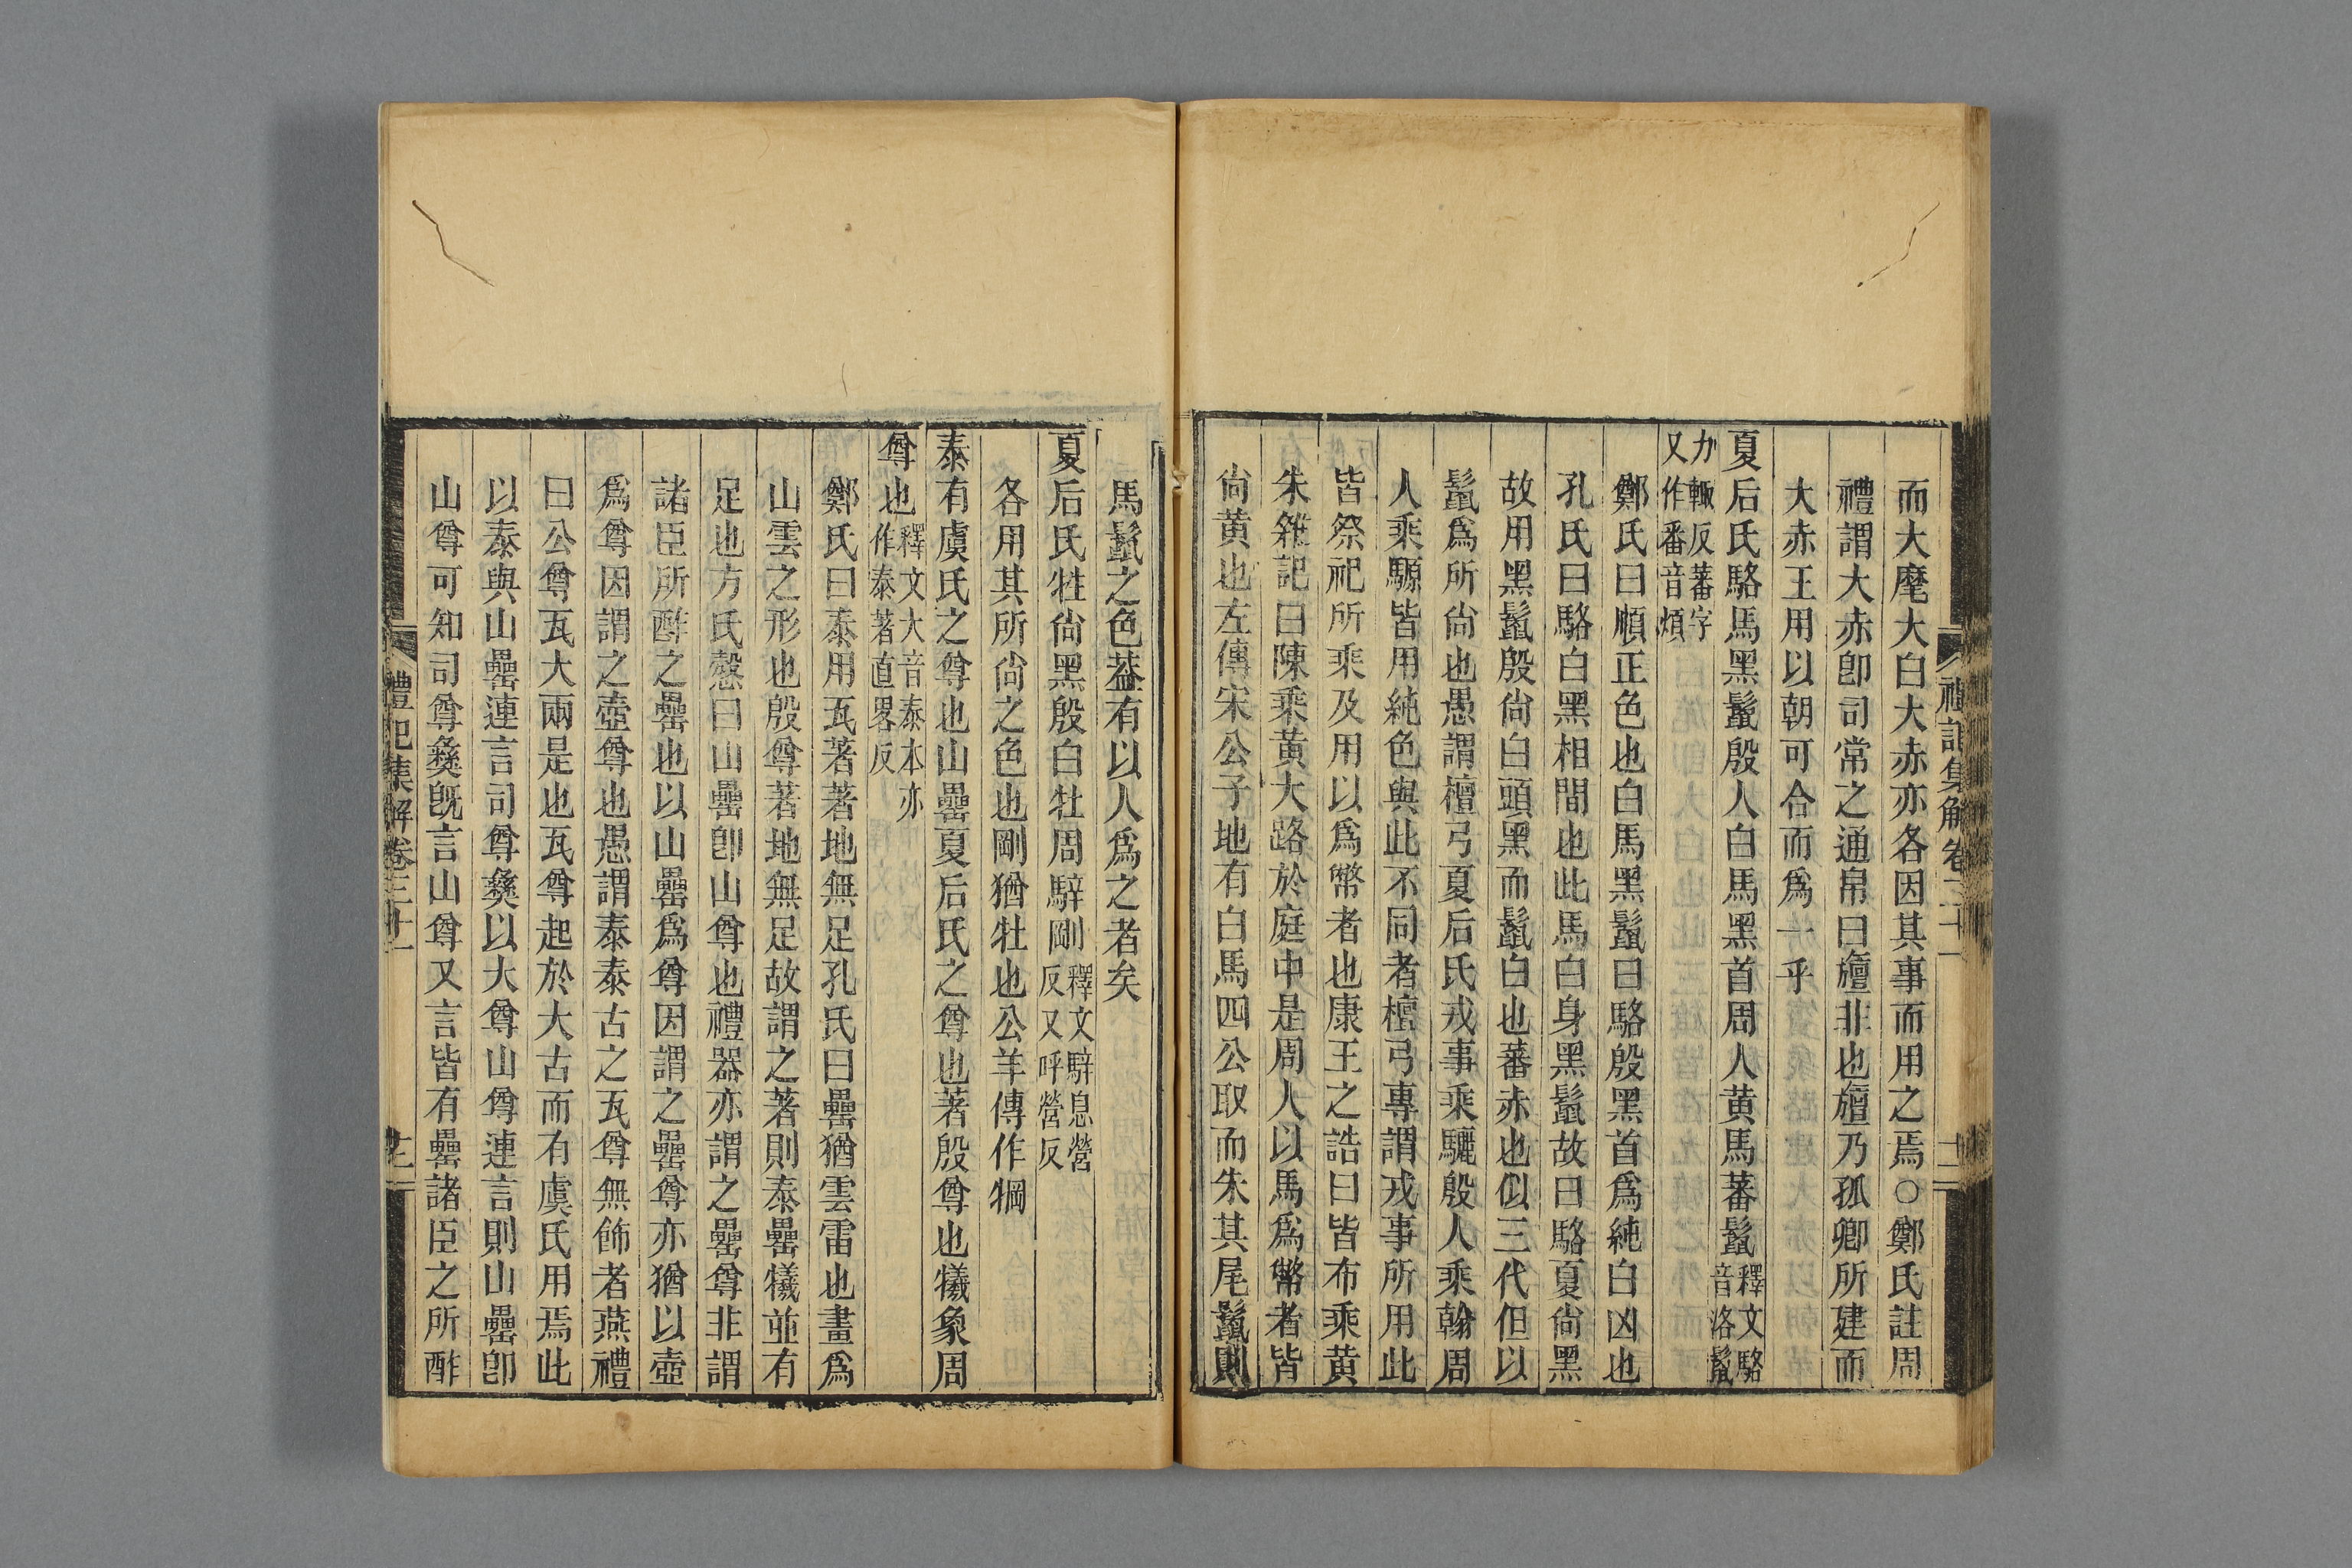 而大麾大白大赤亦各因其事而用之焉○鄭氏註周
禮謂大赤卽司常之通帛曰旜非也旜乃孤卿所建而
大赤王用以朝可合而爲一乎
夏后氏駱馬黑鬣殷人白馬黑首周人黃馬蕃鬣釋文駱音洛鬣
力輙反蕃字又作番音煩
鄭氏曰順正色也白馬黑鬣曰駱殷黑首爲純白凶也
孔氏曰駱白黑相間也此馬白身黑鬣故曰駱夏尙黑
故用黑鬣殷尙白頭黑而鬣白也蕃赤也似三代但以
鬣爲所尙也愚謂檀弓夏后氏戎事乘驪殷人乘翰周
人乘騵皆用純色與此不同者檀弓專謂戎事所用此
皆祭祀所乘及用以爲幣者也康王之誥曰皆布乘黃
朱雜記曰陳乘黃大路於庭中是周人以馬爲幣者皆
尙黃也左傳宋公子地有白馬四公取而朱其尾鬣則
禮記集解卷三十一
十二
馬鬣之色葢有以人爲之者矣
夏后氏牲尙黑殷白牡周騂剛釋文騂息營反又呼營反
各用其所尙之色也剛猶牡也公羊傳作犅
泰有虞氏之尊也山罍夏后氏之尊也著殷尊也犧象周
尊也釋文大音泰本亦作泰著直畧反
鄭氏曰泰用瓦著著地無足孔氏曰罍猶雲雷也畫爲
山雲之形也殷尊著地無足故謂之著則泰罍犧並有
足也方氏慤曰山罍卽山尊也禮器亦謂之罍尊非謂
諸臣所酢之罍也以山罍爲尊因謂之罍尊亦猶以壺
爲尊因謂之壺尊也愚謂泰泰古之瓦尊無飾者燕禮
曰公尊瓦大兩是也瓦尊起於大古而有虞氏用焉此
以泰與山罍連言司尊彝以大尊山尊連言則山罍卽
山尊可知司尊彝旣言山尊又言皆有罍諸臣之所酢
禮記集解卷三十一
十二